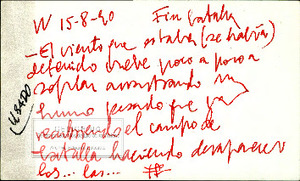 W 15-8-90 Fin batalla
- El viento que estaba (se había)
detenido vuelve poco a poco a
soplar arrastrando un
humo pesado que va
recubriendo el campo de
batalla haciendo desaparecer
los... las... #